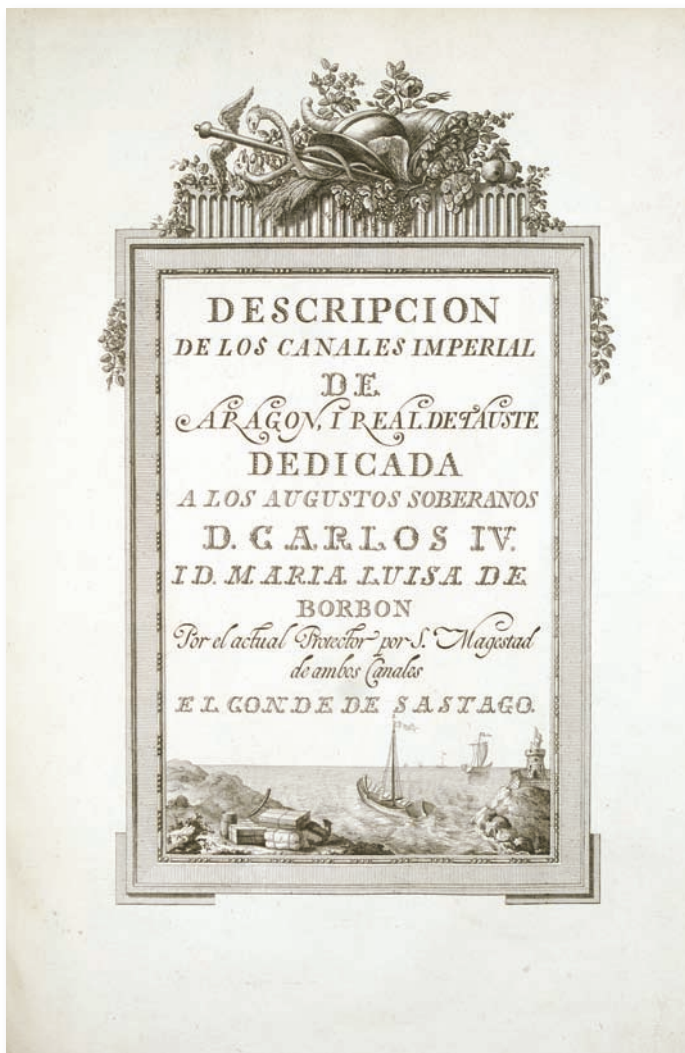 DESCRIPCION
DE LOS CANALES IMPERIAL
DE
ARAGON, I REAL DE TAUSTE
DEDICADA
A LOS AUGUSTOS SOBERANOS
D. CARLOS IV.
I D. MARIA LUISA DE
BORBON
Por el actual Protector por S. Magestad
de ambos Canales
EL CONDE DE SASTAGO.